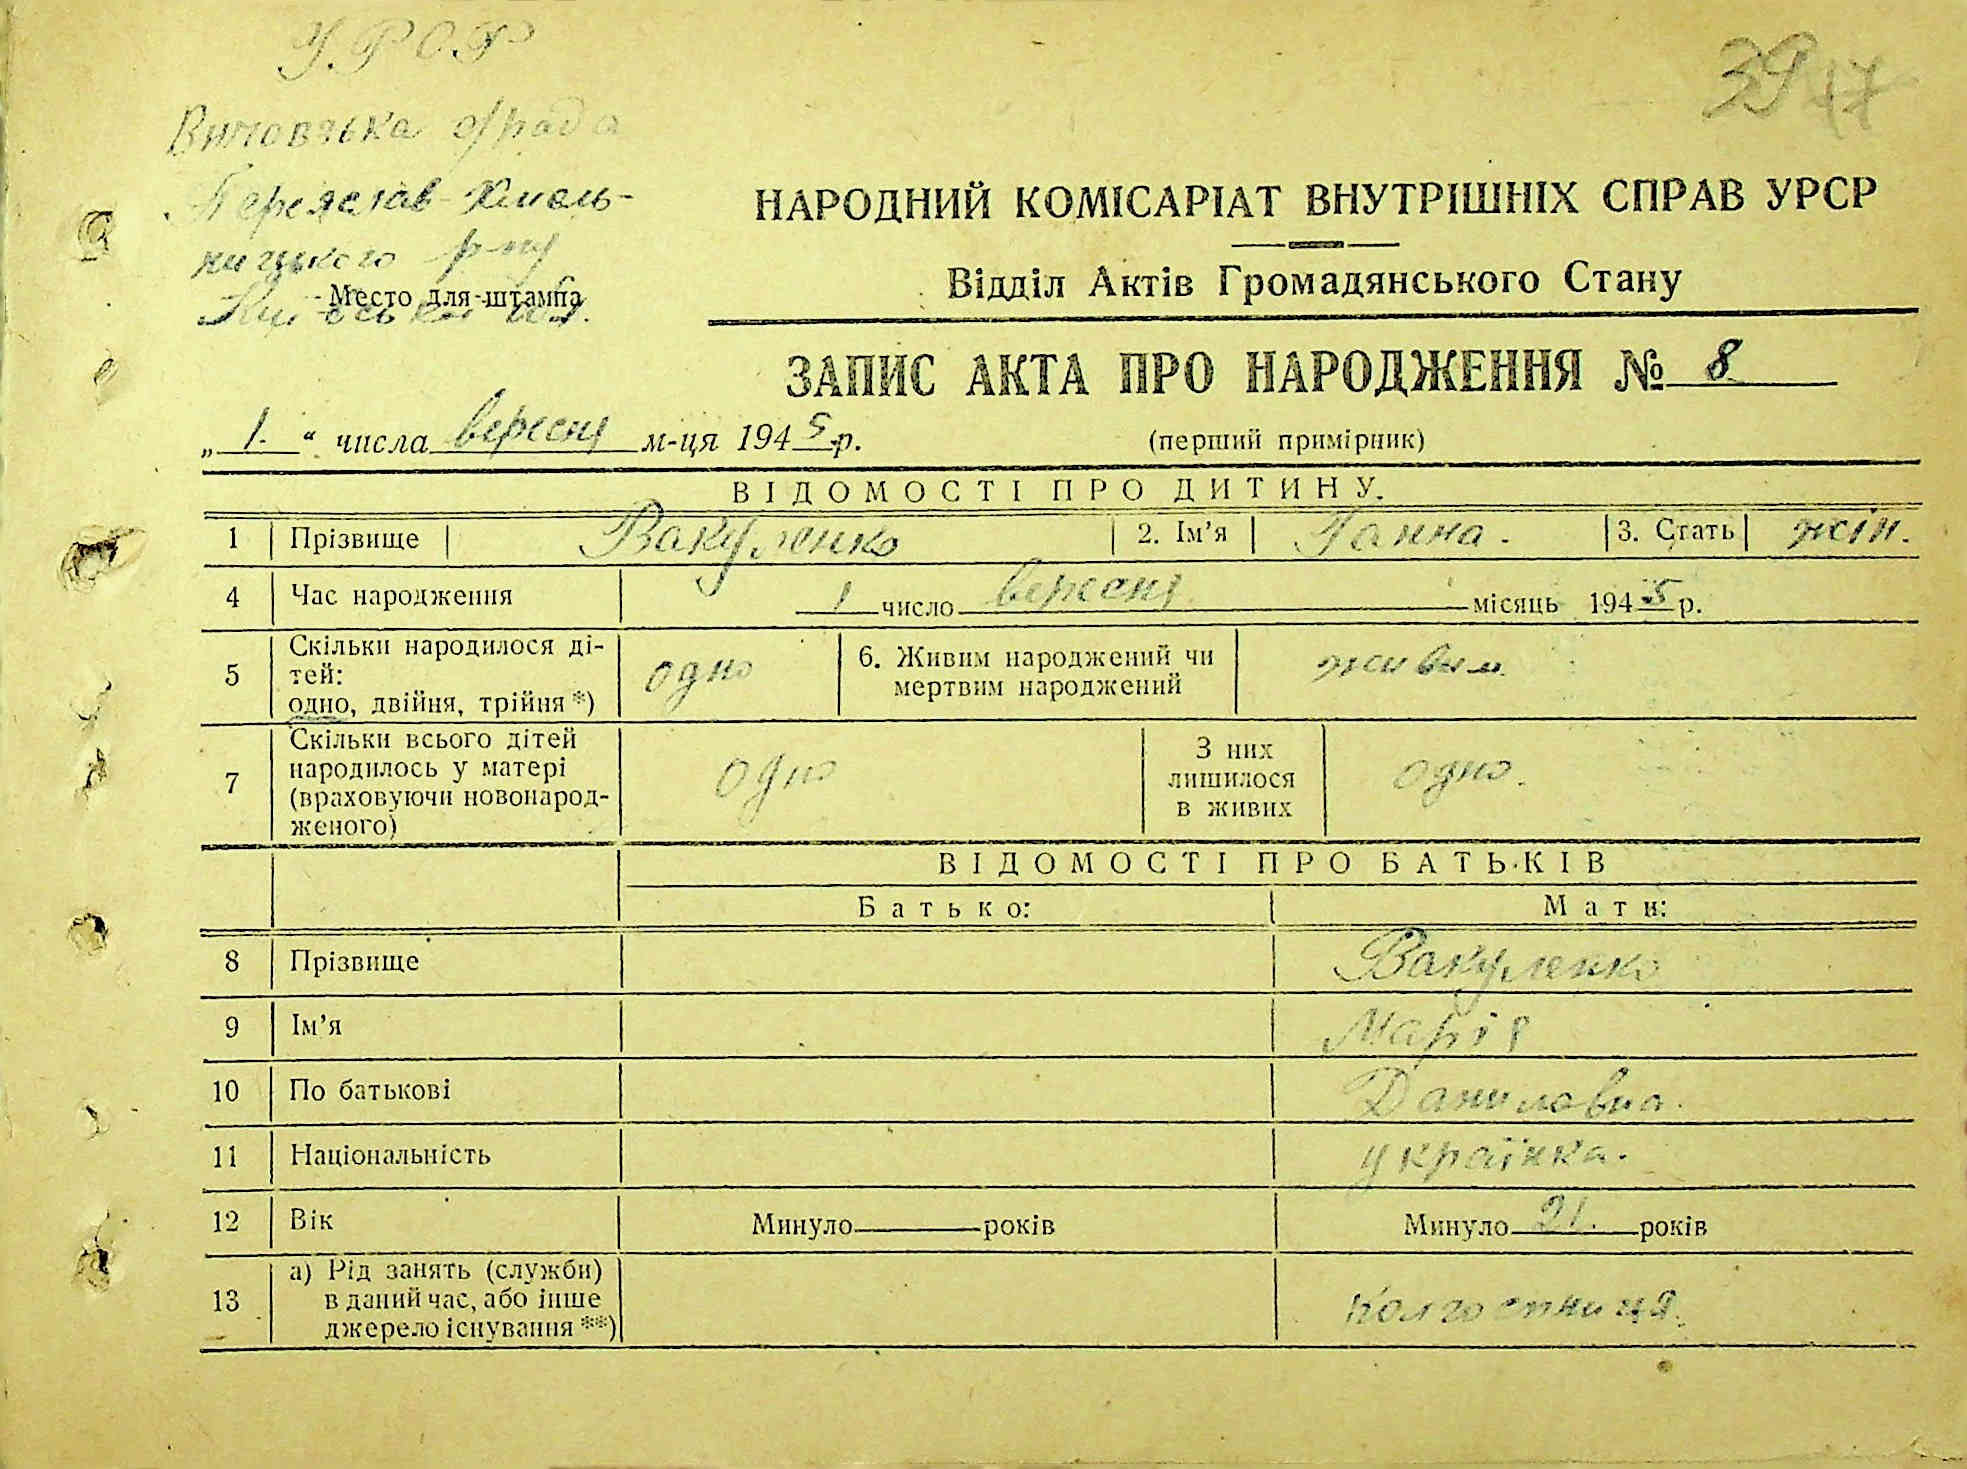 У.Р.С.Р
39 17
с/рада
Переяслав-Хмель-
ницького р-ну
Место для штампа
НАРОДНИЙ КОМІСАРІАТ ВНУТРІШНІХ СПРАВ УРСР
Відділ Актів Громадянського Стану
ЗАПИС АКТА ПРО НАРОДЖЕННЯ № 8
„ 1. “ числа вересня м-ця 1945 р.
(перший примірник)
ВІДОМОСТІ ПРО ДИТИНУ.
1 Прізвище Вакуленко 2. Ім’я Ганна. 3. Стать жін.
4 Час народження 1 число вересня місяць 1945 р.
5 Скільки народилося ді-
тей:
одно, двійня, трійня *) одно
6. Живим народжений чи
мертвим народжений живим
7 Скільки всього дітей
народилось у матері
(враховуючи новонарод-
женого) одно
З них
лишилося
в живих одно.
ВІДОМОСТІ ПРО БАТЬКІВ
Батько: Мати:
8 Прізвище Вакуленко
9 Ім’я Марія
10 По батькові Даниловна.
11 Національність українка.
12 Вік Минуло років Минуло 21. років
13 а) Рід занять (служби)
в даний час, або інше
джерело існування **) колгоспниця.